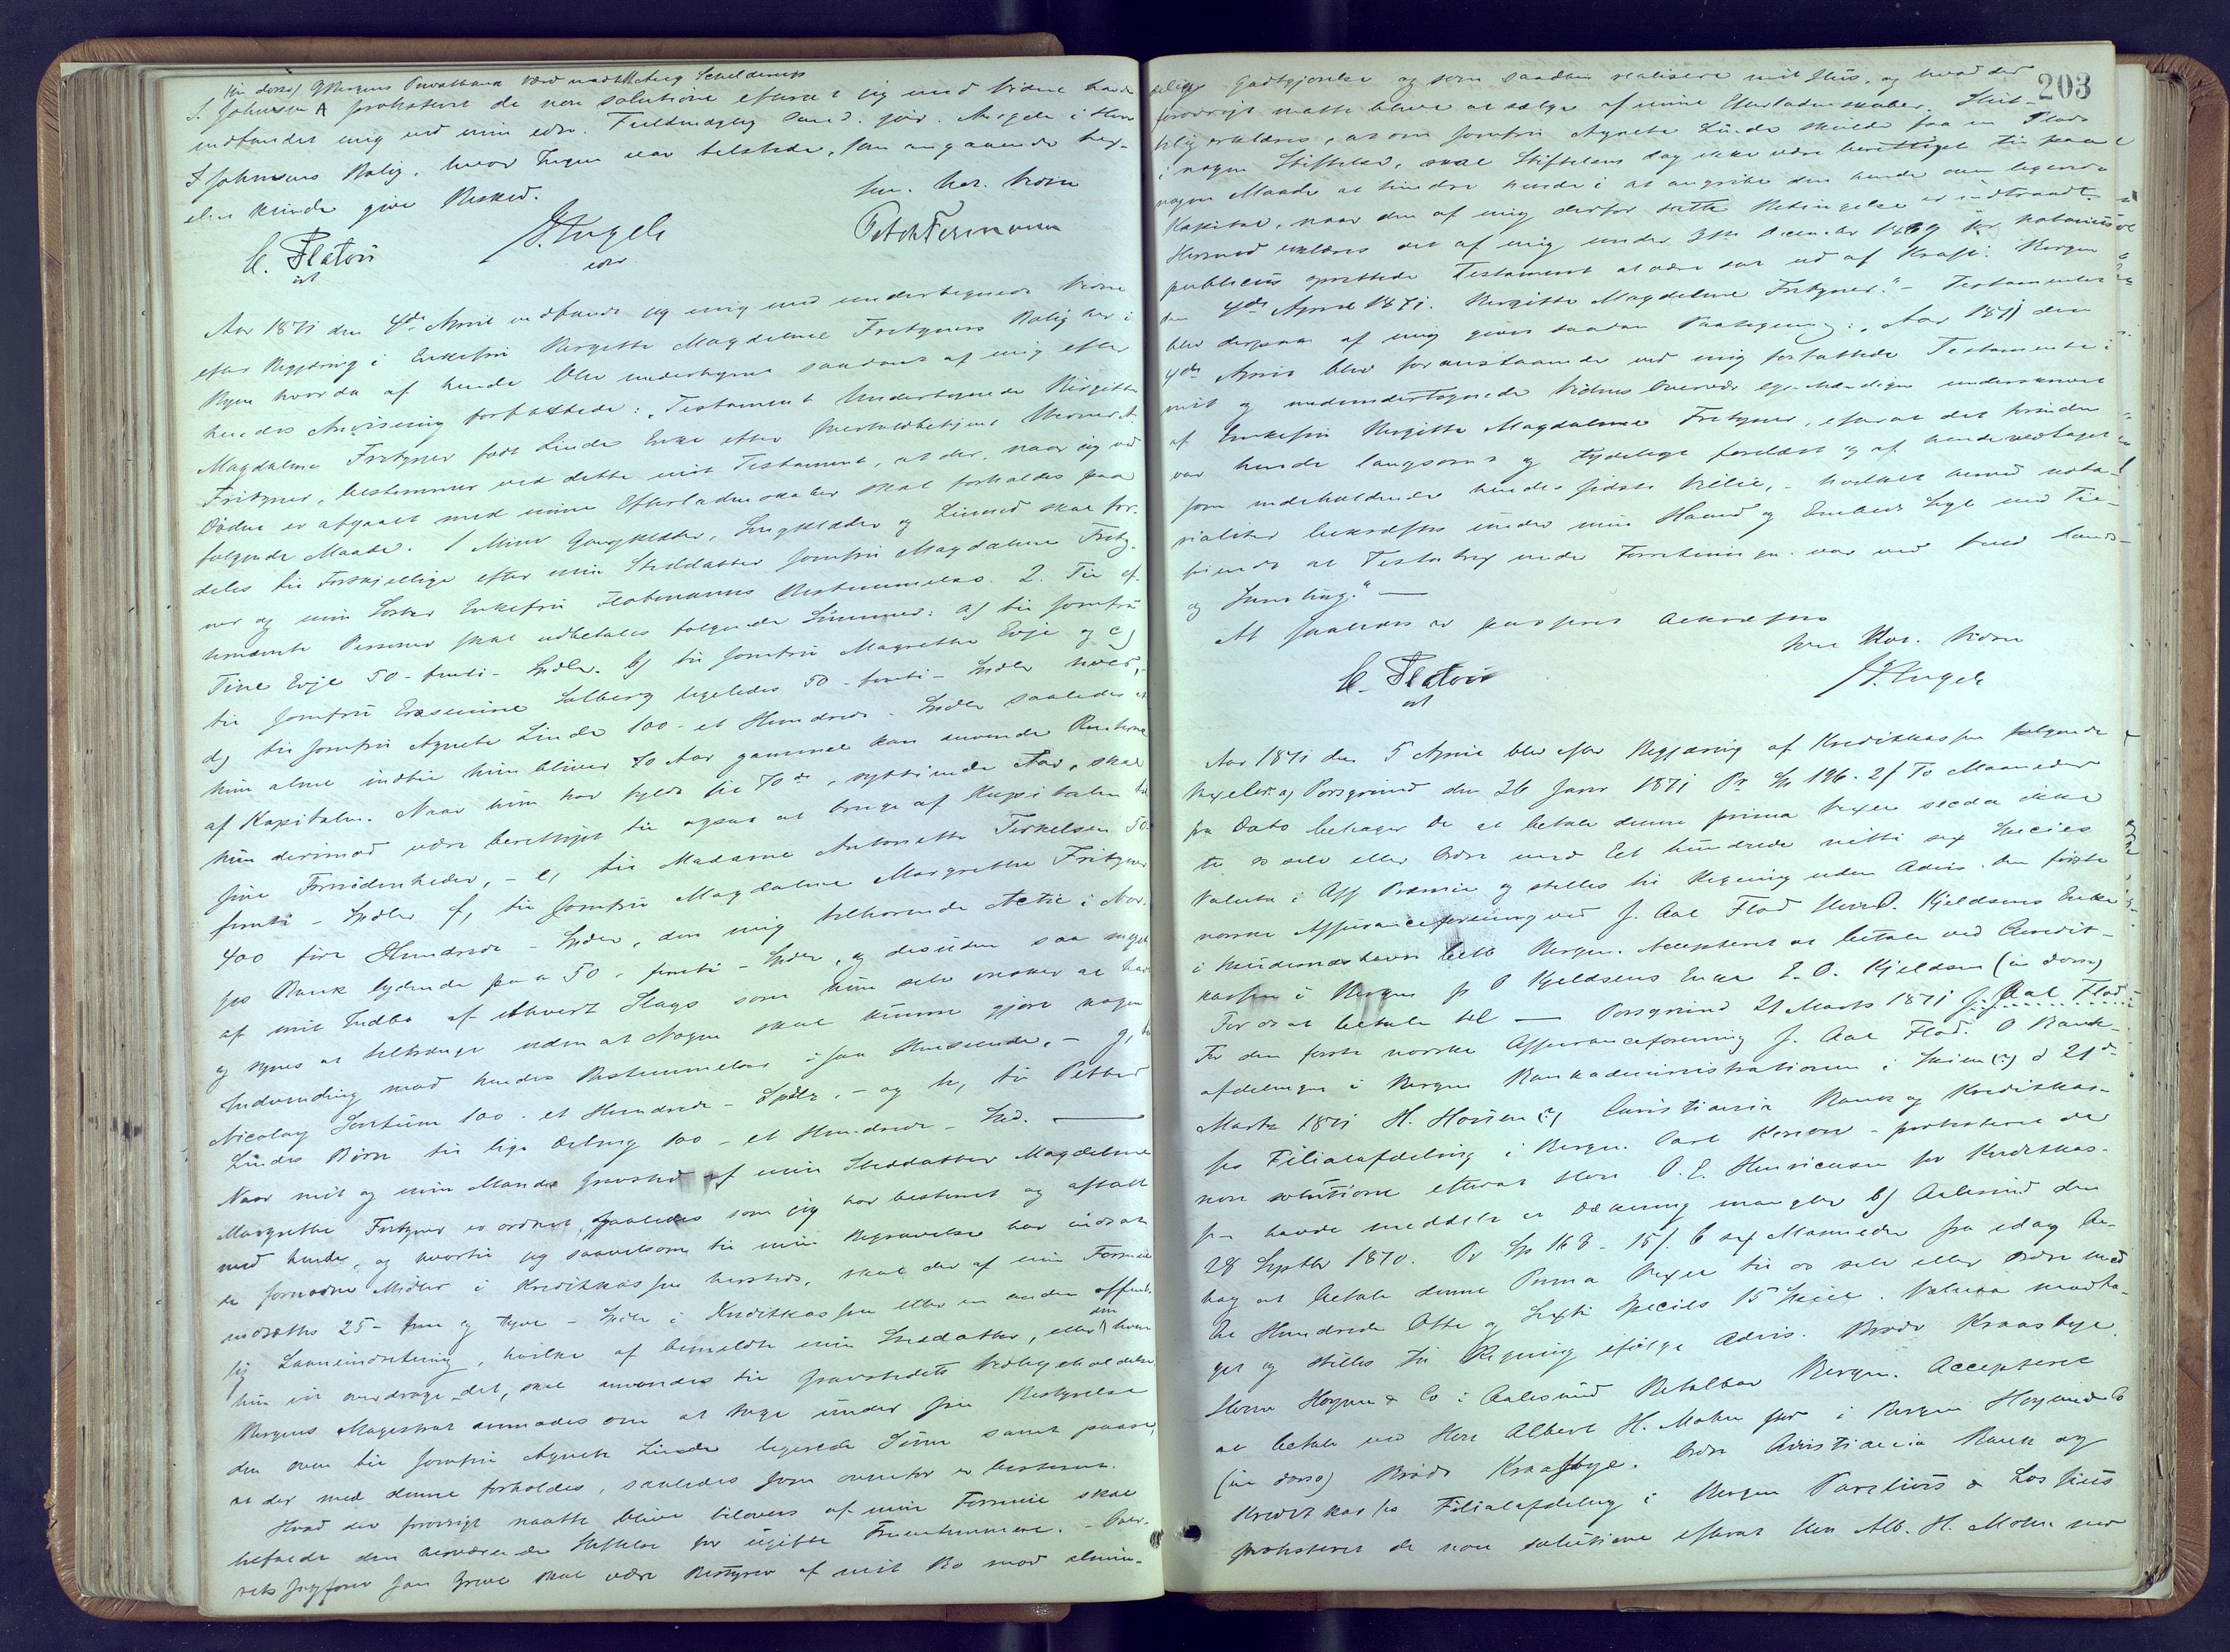 (in dorso) Bergens Privatbank
S. Johnsen A protesteret de non solutione efterat jeg med Vidne havde
indfundet mig ved min edsv. Fuldmægtig Cand. jur. Angell i Herr
S Johnsens Bolig, hvor Ingen var tilstede, som angaaende Vex-
elen kunde give Besked.
C. Platou
J. Angell
edsv
not. pub. Bergen
Aar 1871 den 4de April indfandt jeg mig med undertegnede Vidne
efter Begjæring i Enkefru Birgitte Magdalene Fritzners Bolig her i
Byen hvorda af hende blev undertegnet saadant af mig efter
hendes Anvisning forfattede: "Testament Undertegnede Birgitte
Magdalene Fritzner født Linde Enke efter Overtoldbetjent
Fritzner, bestemmer ved dette mit Testament, at der, naar jeg ved
Døden er afgaaet med mine Efterladenskaber skal forholdes paa
følgende Maade. 1 Mine Gangklæder, Sengklæder og Linned skal for-
deles til Forskjellige efter min Steddatter Jomfru Magdalene Fritz-
ner og min Søster Enkefru Holtmanns Bestemmelse. 2. Til ef-
ternævnte Personer skal udbetales følgende Summer: a) til Jomfru
Tine Evje 50 - femti - Spdlr. b) til Jomfru Magrethe Evje og c)
til Jomfru Erasmine Solberg ligeledes 50 - femti - Spdlr hver,
d) til Jomfru Agnete Linde 100 - et Hundrede - Spdlr saaledes at
hun alene indtil hun bliver 70 Aar gammel kan anvende Renterne
af Kapitalen. Naar hun har fyldt sit 70de, syttiende Aar, skal
hun derimod være berettiget til ogsaa at bruge af Kapitalen til
sine Fornødenheder, - e, til Madame Antonette Terkelsen 50
femti - Spdlr f, til Jomfru Magdalene Margrethe Fritzner
400 fire Hundrede - Spdlr, den mig tilhørende Actie i Nor-
ges Bank lydende paa 50 - femti - Spdlr, og desuden saa meget
af mit Indbo af ethvert Slags som hun selv ønsker at have
og synes at tiltrænge uden at Nogen skal kunne gjøre nogen
Indvending mod hendes Bestemmelser i saa Henseende, - g, til
Nicolay Sontum 100 - et Hundrede - Spdlr, - og h, til Petter
Lindes Børn til lige Deling 100 - et Hundrede - Spd.
Naar mit og min Mands Gravsted af min Steddatter Magdalene
Margrethe Fritzner er ordnet, saaledes som jeg har bestemt og aftalt
med hende, og hvortil jeg saavelsom til min Begravelse har indsat
de fornødne Midler i Kreditkassen hersteds, skal der af min Formue
indsættes 25 - fem og tyve - Spdlr i Kreditkassen eller en anden offent-
lig Laaneindretning, hvilke af bemeldte min Steddatter, eller den hvem
hun vil overdrage det, skal anvendes til Gravstedets Vedligeholdelse
Bergens Magistrat anmodes om at tage under sin Bestyrelse
den oven til Jomfru Agnete Linde legerede Sum samt paase,
at der med denne forholdes, saaledes som ovenfor er bestemt.
Hvad der forøvrigt maatte blive tilovers af min Formue skal
tilfalde den herværende Stiftelse for ugifte Fruentimmere. - Over-
retssagfører Jan Greve skal være Bestyrer af mit Bo mod almin-
203
delig Godtgjørelse og som saadan realisere mit Huus, og hvad der
forøvrigt maatte blive at sælge af mine Efterladenskaber. Slut-
telig erklæres, at om Jomfru Agnete Linde skulde faa en Plads
i nogen Stiftelse, skal Stiftelsen dog ikke være berettiget til paa
nogen Maade at hindre hende i at angribe den hende oven legerede
Kapital, naar den af mig derfor satte Betingelse er indtraadt.
Hermed erklæres det af mig under December for notarius
publicus oprettede Testament at være sat ud af Kraft. Bergen
den 4de April 1871. Birgitte Magdalene Fritzner." - Testamentet
blev derpaa af mig given saadan Paategning: "Aar 1871 den
4de April blev foranstaaende ved mig forfattede Testamente i
mit og medundertegnede Vidnes Overvær egenhændigen underskrevet
af Enkefru Birgitte Magdalene Fritzner, efterat det forinden
var hende langsomt og tydeligt forelæst og af hende vedtaget
som indeholdende hendes sidste Villie, - hvilket herved nota-
rialiter bekræftes under min Haand og Embeds Segl med Til-
føiende at Testatrix under Forretningen var ved fuld Sands
og Samling." -
At saaledes er passeret bekræftes
C. Platou
J. Angell
Aar 1871 den 5 April blev efter Begjæring af Kreditkassen følgende
Vexeler: a) Porsgrund den 26 Janr 1871 Pr Sp 196. 2/ To Maaneder
fra Dato behager De at betale denne prima Vexel secda ikke
til os selv eller Ordre med Eet hundrede nitti sex Species
Valuta i Ass Præmie og stilles til Regning uden Advis. Den første
norske Assuranceforening ved J. Aal Flod Herr O. Kjeldsens Enke
i betb Bergen. Accepteret at betale ved Credit-
kassen i Bergen pr O Kjeldsens Enke E. O. Kjeldsen (in dorso)
For os at betale til — Porsgrund 21 Marts 1871 J. Aal Flod
For den første norske Assuranceforening J. Aal Flod. O Bank-
afdelingen i Bergen Bankadministrationen i Skien (?) d 21de
Marts 1871 H. Hansen (?) Christiania Bank og Kreditkas-
ses Filialafdeling i Bergen. Carl Konow - protesteret de
non solutione efterat Herr O. E. Henricksen for Kreditkas-
sen havde meddelt at Dækning mangler b) Aalesund den
28 Septbr 1870. Pr Sp 168 - 15/. 6 sex Maaneder fra idag be-
hag at betale denne Prima Vexel til os selv eller Ordre med
Et Hundrede Otte og Sexti Species 15 Skill. Valuta modta-
get og stilles til Regning ifølge Advis. Brødr Kraasbye.
Herrer Hagen & Co i Aalesund Betalbar Bergen. Accepteret
at betale ved Herr Albert H. Mohn i Bergen
(in dorso) Brødr Kraasbye. Ordre Christiania Bank og
Kreditkasses Filialafdeling i Bergen
protesteret de non solutione efterat Herr Alb. H. Mohn ved